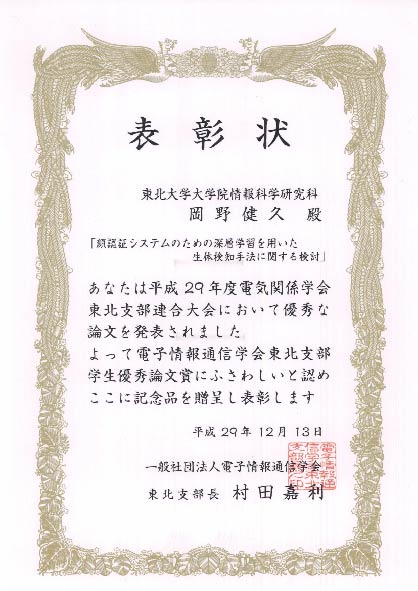 表彰状
東北大学大学院情報科学研究科
岡野健久 殿
「顔認証システムのための深層学習を用いた
生体検知手法に関する検討」
あなたは平成29年度電気関係学会
東北支部連合大会において優秀な
論文を発表されました
よって電子情報通信学会東北支部
学生優秀論文賞にふさわしいと認め
ここに記念品を贈呈し表彰します
平成29年12月13日
一般社団法人電子情報通信学会
東北支部長 村田嘉利